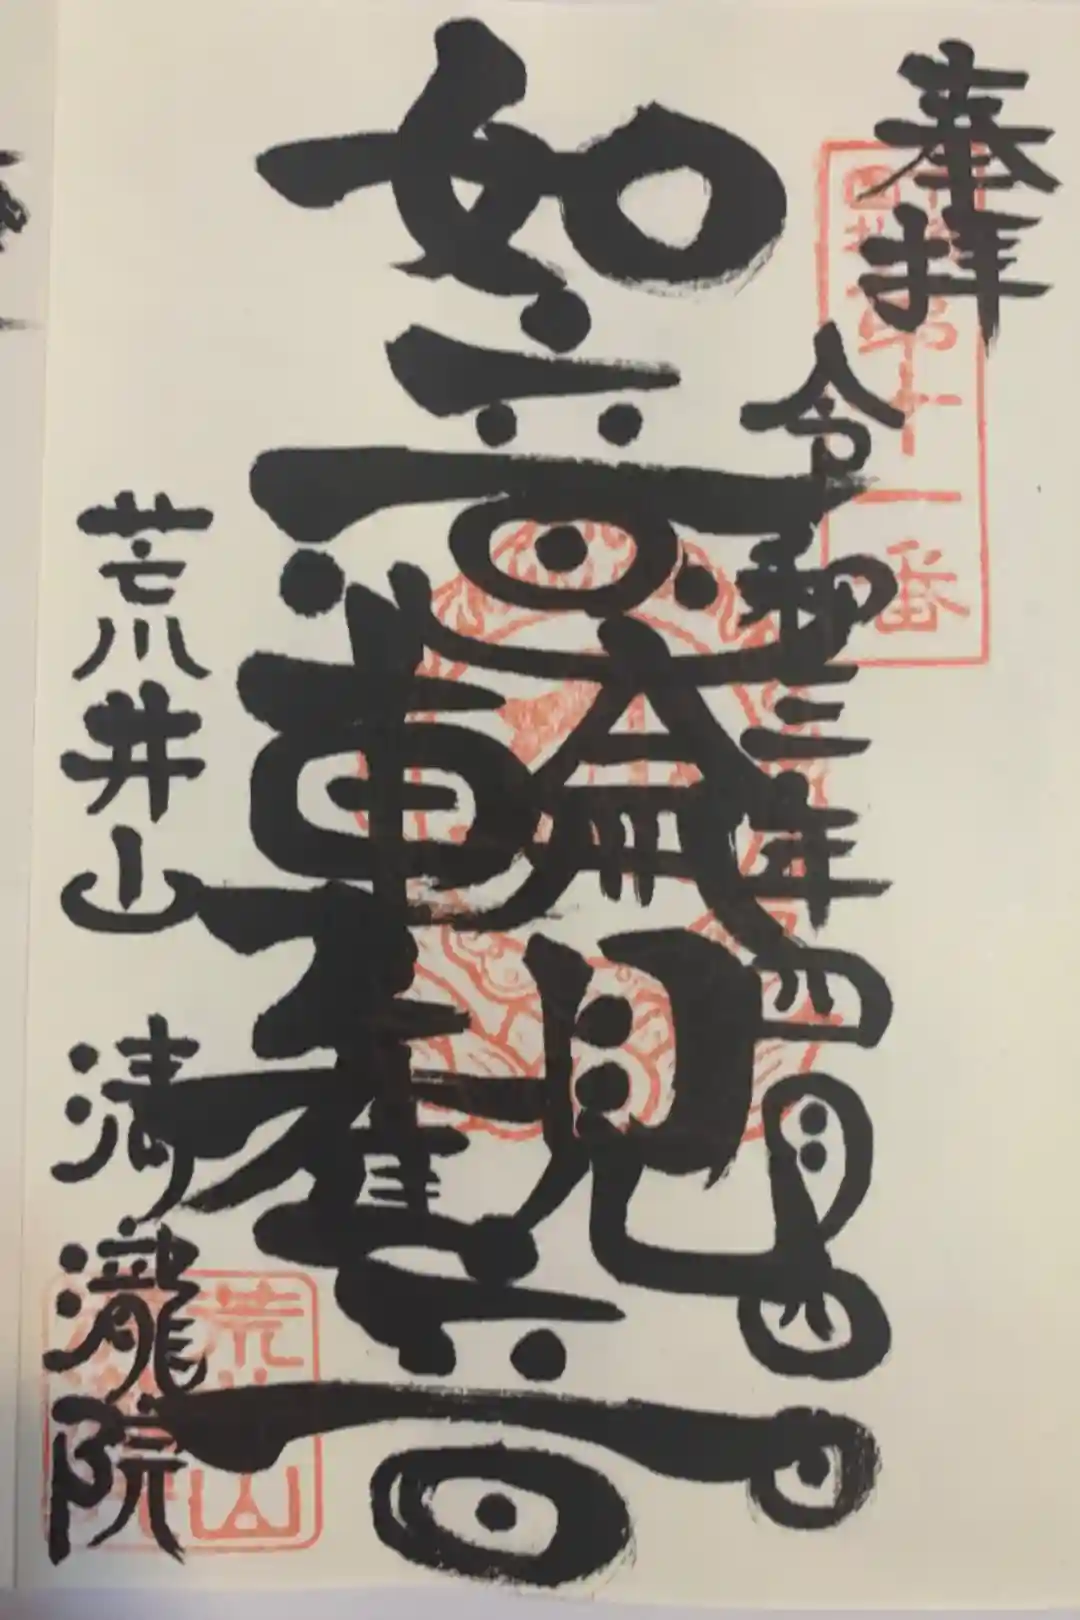 奉拝
令和三年四月四日
如意輪観音
荒井山 清瀧院
第十一番
荒
山